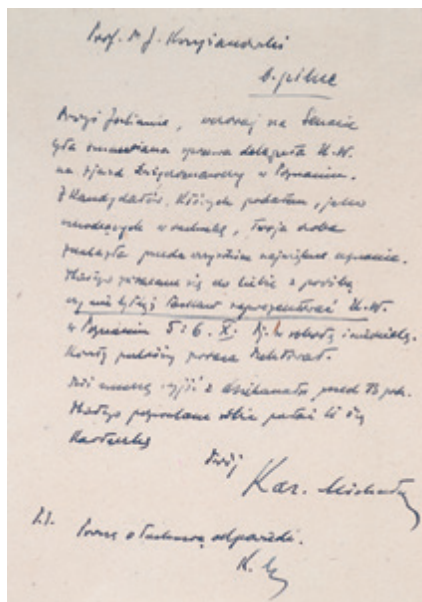 Prof. Dr J. Krzyżanowski
b. pilne
Drogi Julianie, wczoraj na Senacie
była omawiana sprawa delegata U.W.
na zjazd w Poznaniu.
Z kandydatów, których podałem, jako
wchodzących w rachubę, Twoja osoba
znalazła przede wszystkim największe uznanie.
Dlatego zwracam się do Ciebie z prośbą
czy nie byłbyś łaskaw reprezentować U.W.
w Poznaniu 5 i 6. XI. tj. w sobotę i niedzielę.
Koszty podróży Rektorat.
Dziś muszę wyjść z dziekanatu przed
Dlatego pozwalam sobie Ci tę
karteczkę
Twój
Kaz. Michałowski
P.S. Proszę o łaskawą odpowiedź.
K. M.